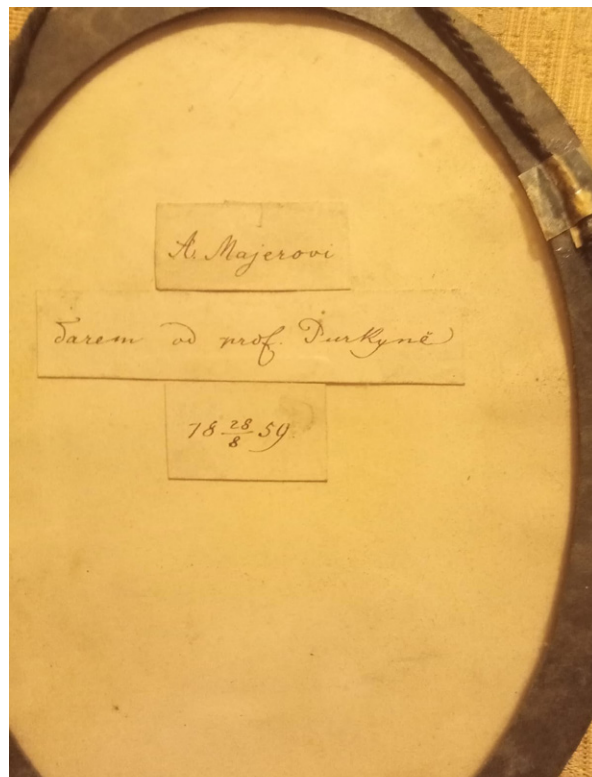 A. Majerovi
darem od prof. Purkyně
18 28/8 59